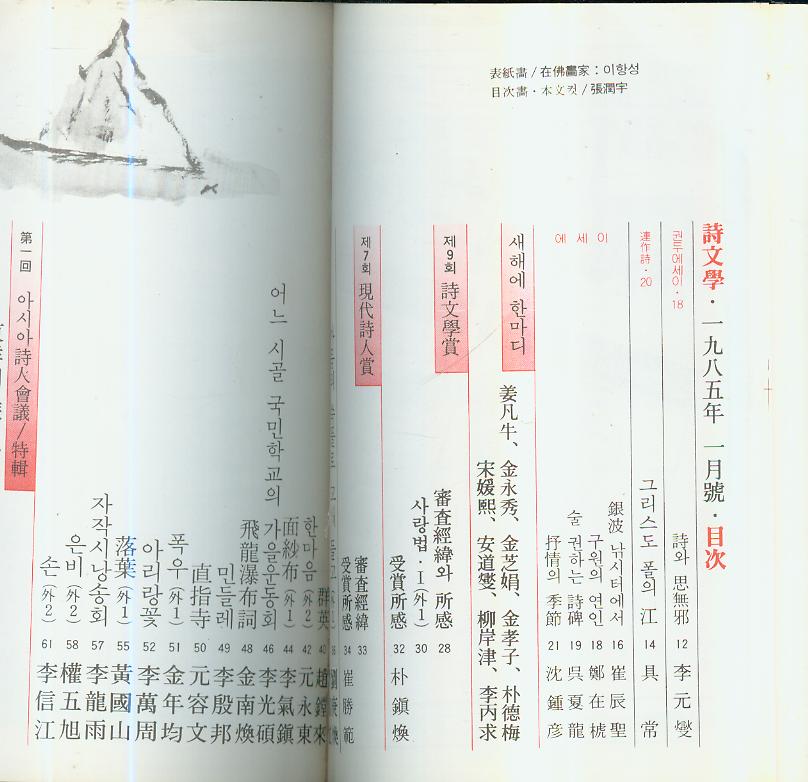 表紙畵/在佛畵家:이항성
目次畵·本文컷/張潤宇
詩文學·一九八五年 一月號·目次
권두에세이·18
詩와 思無邪 12 李元燮
連作詩·20
그리스도 폴의 江 14 具常
에세이
銀波 낚시터에서 16 崔辰聖
구원의 연인 18 鄭在虓
술 권하는 詩碑 19 吳夏龍
抒情의 季節 21 沈鍾彦
새해에 한마디
姜凡牛、金永秀、金芝娟、金孝子、朴德梅
宋媛熙、安道燮、柳岸津、李丙求
제9회 詩文學賞
審査經緯와 所感 28
사랑법·Ⅰ(外1) 30
受賞所感 32 朴鎭煥
제7회 現代詩人賞
審査經緯 33
受賞所感 34 崔勝範
群英 40 趙鐘來
한마음(外2) 42 元永東
面紗布(外1) 44 李氣鎭
어느 시골 국민학교의 가을운동회 46 李光碩
飛龍瀑布詞 48 金南煥
민들레 49 李殷邦
直指寺 50 元容文
폭우(外1) 51 金年均
아리랑꽃 52 李萬周
落葉(外1) 55 黃國山
자작시낭송회 57 李龍雨
은비(外2) 58 權五旭
손(外2) 61 李信江
第一回 아시아詩人會議/特輯